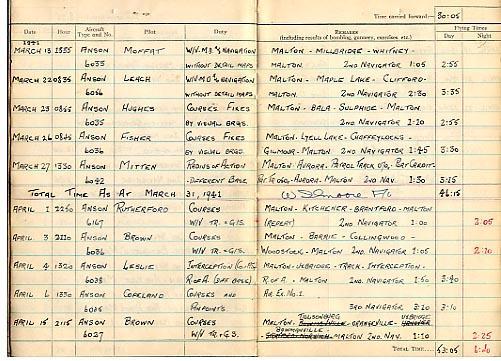 Time carried forward:— 30:05
Date Hour Aircraft Type and No. Pilot Duty REMARKS Flying Times
(including results of bombing, gunnery, exercises, etc.) Day Night
1941
MARCH 13 1355 ANSON MOFFAT W/V. M.D. & NAVIGATION MALTON - MILLBRIDGE - WHITNEY -
6035 WITHOUT DETAIL MAPS MALTON. 2ND NAVIGATOR 1:05 2:55
MARCH 22 0835 ANSON LEACH W/V M.D & NAVIGATION MALTON - MAPLE LAKE - CLIFFORD -
6056 WITHOUT DETAIL MAPS. MALTON. 2ND NAVIGATOR 2:30 3:35
MARCH 23 0845 ANSON HUGHES COURSES FIXES MALTON - BALA - SULPHIDE - MALTON
6035 BY VISUAL BRGS. 2ND NAVIGATOR 2:10 2:55
MARCH 26 0845 ANSON FISHER COURSES FIXES MALTON - LYELL LAKE - CHAFFEYLOCKS -
6036 BY VISUAL BRGS. GILMOUR - MALTON 2ND NAVIGATOR 1:45 3:30
MARCH 27 1330 ANSON MITTEN RADIUS OF ACTION MALTON - AURORA - PATROL TRACK
6042 - DIFFERENT BASE AURORA - MALTON 2ND NAV. 1:30 3:15
TOTAL TIME AS AT MARCH 31, 1941 F/O 46:15
APRIL 1 2250 ANSON RUTHERFORD COURSES MALTON - KITCHENER - BRANTFORD - MALTON
6167 W/V TR. & G/S. (REPEAT) 2ND NAVIGATOR 1:00 2:05
APRIL 3 2110 ANSON BROWN COURSES MALTON - BARRIE - COLLINGWOOD -
6036 W/V TR. & G/S. WOODSTOCK - MALTON 2ND NAVIGATOR 1:05 2:20
APRIL 4 1320 ANSON LESLIE INTERCEPTION MALTON - UXBRIDGE - TRACK - INTERCEPTION -
6038 R of A. (SAME BASE) R of A - MALTON 2ND NAVIGATOR. 1:50 3:40
APRIL 6 1330 ANSON COPELAND COURSES AND AR. EX. NO. 1.
6025 PINPOINTS 3RD NAVIGATOR 3:10 3:10
APRIL 15 2115 ANSON BROWN COURSES MALTON - TILLSONBURG - ORANGEVILLE - UXBRIDGE
6027 W/V TR. & G.S. BOWMANVILLE - MALTON 2ND NAV. 1:10 2:25
TOTAL TIME.... 53:05